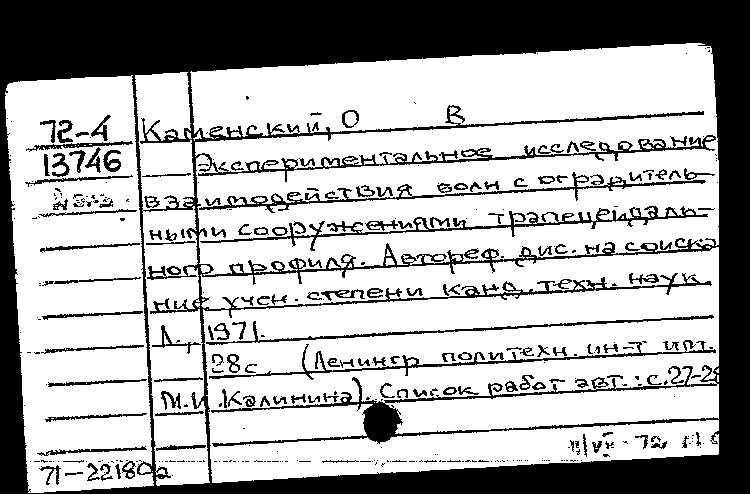 72-4 Каменский, О В
13746 Экспериментальное исследование
взаимодействия волн с оградитель-
ными сооружениями трапецеидаль-
ного профиля. Автореф. дис. на соиска
ние учен. степени канд. техн. наук.
Л., 1971.
28с. (Ленингр политехн. ин-т им.
М.И. Калинина). Список работ авт.: с. 27-28
72
71-22180а